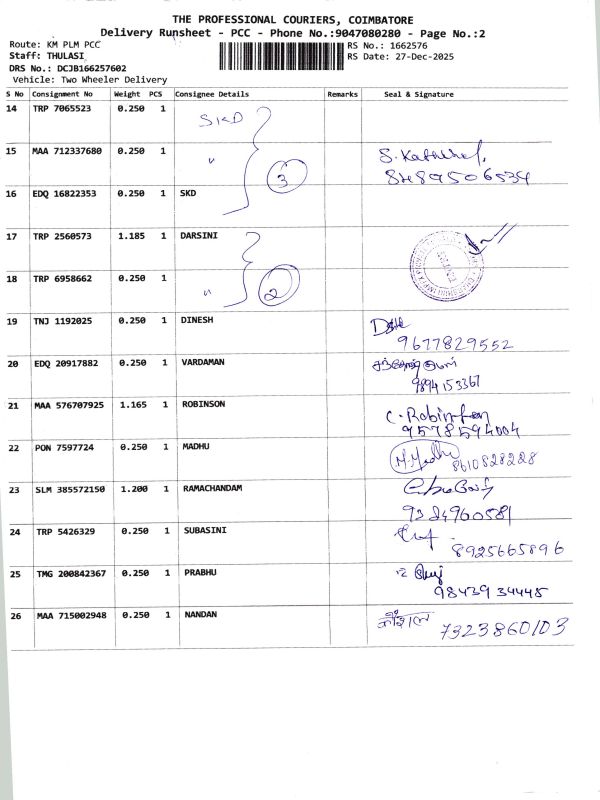 THE PROFESSIONAL COURIERS, COIMBATORE
Delivery Runsheet - PCC - Phone No.:9047080280 - Page No.:2
Route: KM PLM PCC RS No.: 1662576
Staff: THULASI RS Date: 27-Dec-2025
DRS No.: DCJB166257602
Vehicle: Two Wheeler Delivery
S No Consignment No Weight PCS Consignee Details Remarks Seal & Signature
14 TRP 7065523 0.250 1 SKD
15 MAA 712337680 0.250 1 "
3
8489506534
16 EDQ 16822353 0.250 1 SKD
17 TRP 2560573 1.185 1 DARSINI
18 TRP 6958662 0.250 1 "
2
19 TNJ 1192025 0.250 1 DINESH
9677829552
20 EDQ 20917882 0.250 1 VARDAMAN
9894153367
21 MAA 576707925 1.165 1 ROBINSON C. Robinson
9578594004
22 PON 7597724 0.250 1 MADHU M. Madhu 8610828228
23 SLM 385572150 1.200 1 RAMACHANDAM
9384960581
24 TRP 5426329 0.250 1 SUBASINI
8925665896
25 TMG 200842367 0.250 1 PRABHU
9843934445
26 MAA 715002948 0.250 1 NANDAN कौशल 7323860103